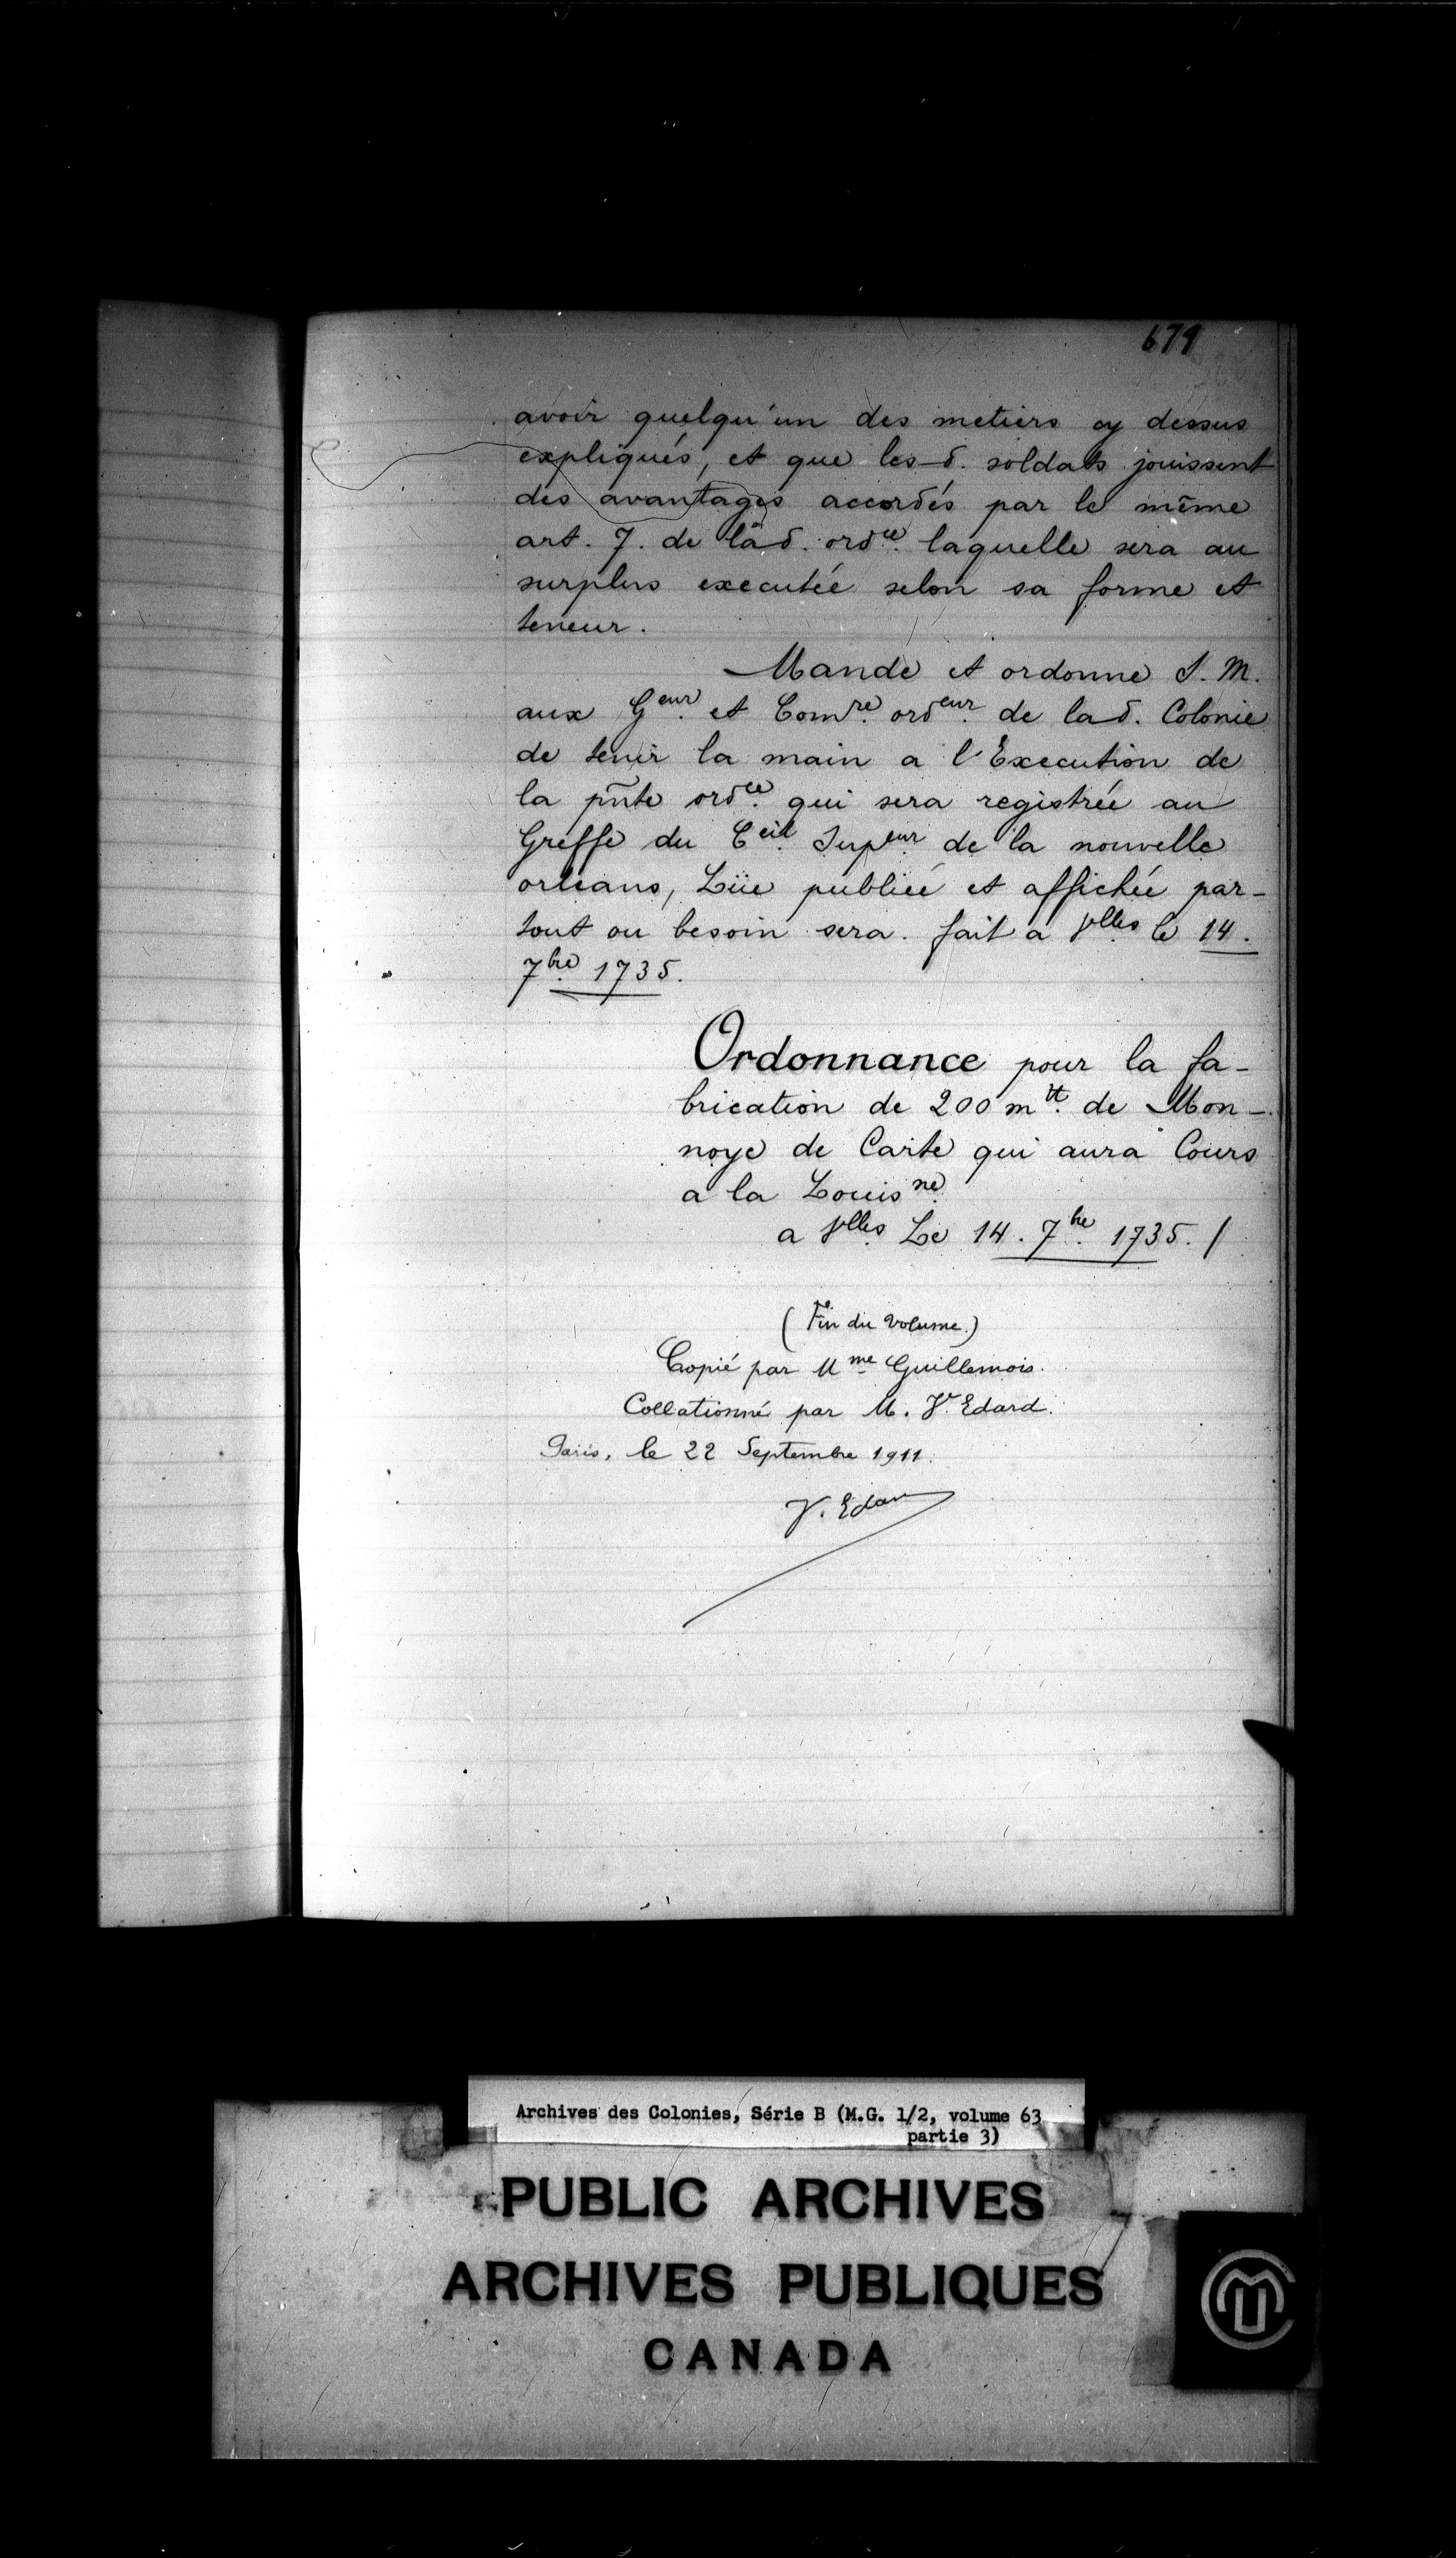 679
avoir quelqu'un des metiers cy dessus
expliqués, et que les d. soldats jouissent
des avantages accordés par le même
art. 7. de la d. ord.ce laquelle sera au
surplus executée selon sa forme et
teneur.
Mande et ordonne S. M.
aux G.eur et Com.re ord.eur de lad. Colonie
de tenir la main a l'Execution de
la pñte ord.ce qui sera registrée au
Greffe du C.eil Sup.eur de la nouvelle
orleans, Lüe publiée et affichée par-
tout ou besoin sera. fait a V.lles le 14.
7.bre 1735.
Ordonnance pour la fa-
brication de 200 m tt. de Mon-
noye de Carte qui aura Cours
a la Louis.ne
a V.lles Le 14. 7.bre 1735. /
(Fin du volume.)
Copié par Mme Guillemois.
Collationné par M. Vr Edard.
Paris, le 22 Septembre 1911.
V. Edard
Archives des Colonies, Série B (M.G. 1/2, volume 63
partie 3)
PUBLIC ARCHIVES
ARCHIVES PUBLIQUES
CANADA